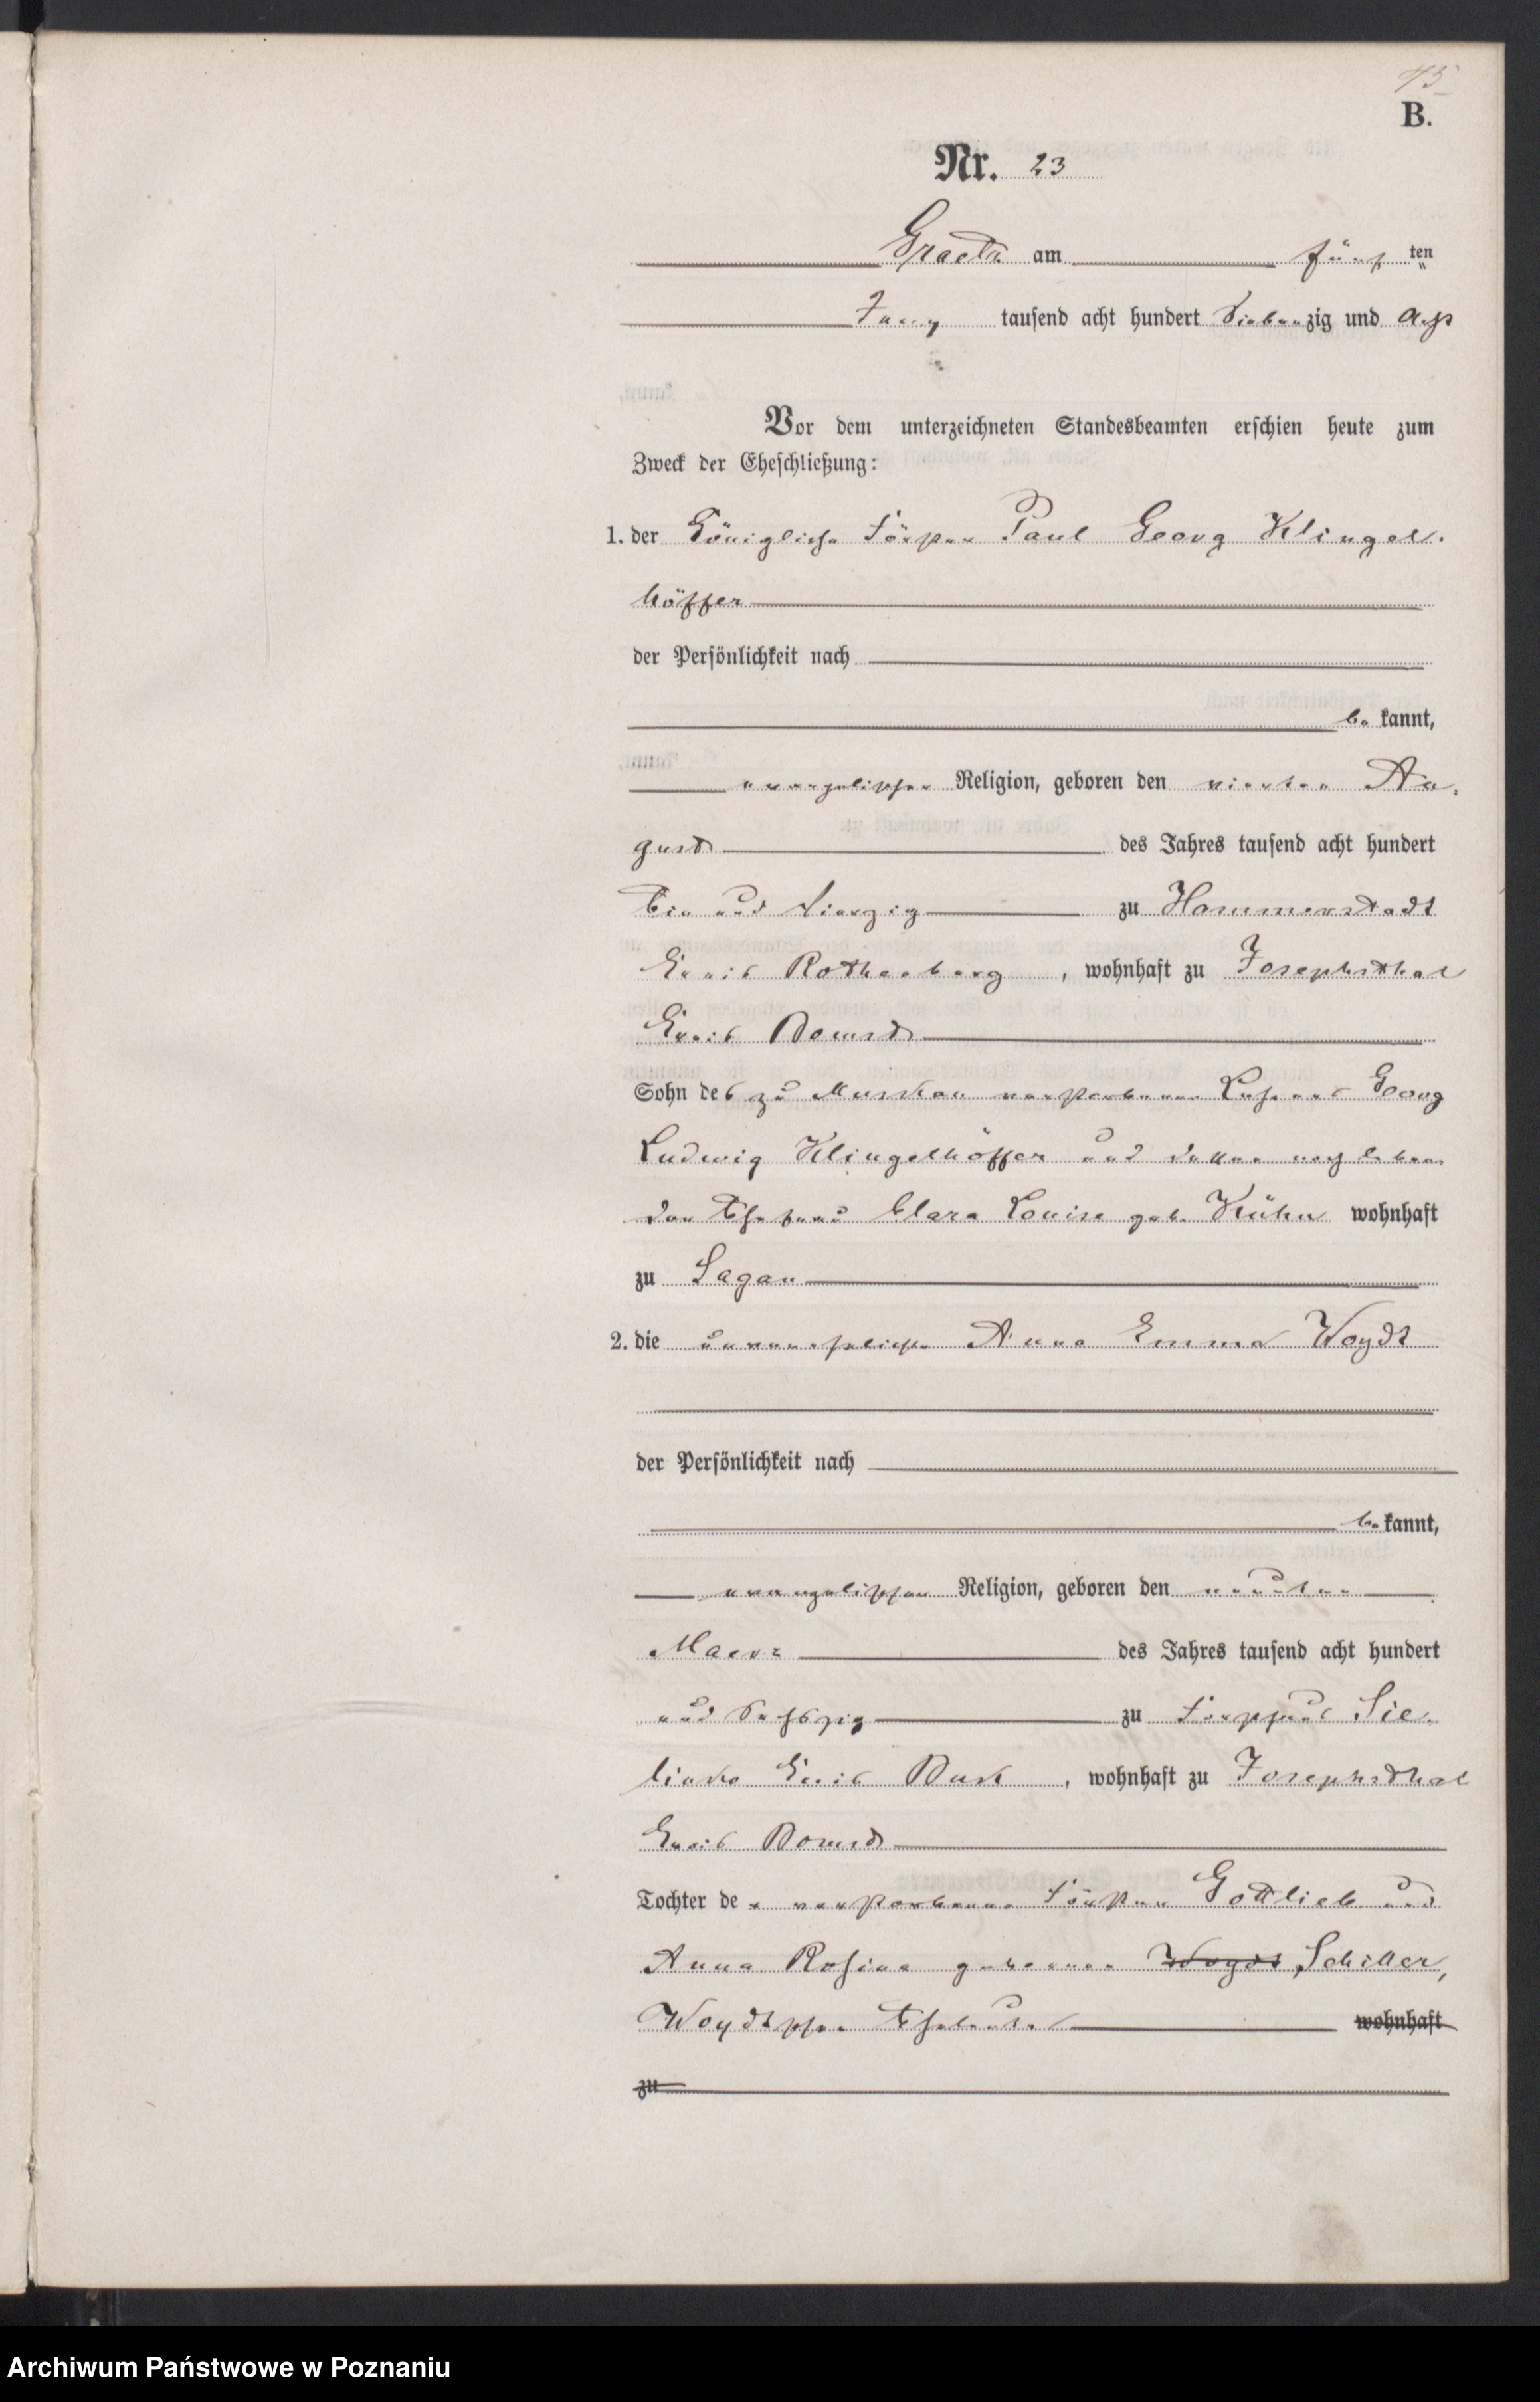 75
B.
Nr. 23
Graetz am fünften
Juny tausend acht hundert Siebenzig und acht
Vor dem unterzeichneten Standesbeamten erschien heute zum
Zweck der Eheschließung:
1. der Königliche Förster Paul Georg Klingel-
höffer
der Persönlichkeit nach
be kannt,
evangelischer Religion, geboren den vierten Au-
gust des Jahres tausend acht hundert
Ein und Vierzig zu Hammerstadt
Kreis Rothenburg, wohnhaft zu Josephsthal
Kreis Bomst
Sohn des zu Muskau verstorbenen Georg
Ludwig Klingelhöffer und dessen noch leben-
den Ehefrau Clara Louise geb. Kühn wohnhaft
zu Sagan
2. die unverehelichte Anna Emma Woydt
der Persönlichkeit nach
be kannt,
evangelischen Religion, geboren den neunten
Maerz des Jahres tausend acht hundert
und Sechszig zu Forsthaus Sie-
linko Kreis Buk, wohnhaft zu Josephsthal
Kreis Bomst
Tochter der verstorbenen Förster Gottlieb und
Anna Rosina geborenen Woydt Schiller,
Woydtschen Eheleute wohnhaft
zu
Archiwum Państwowe w Poznaniu